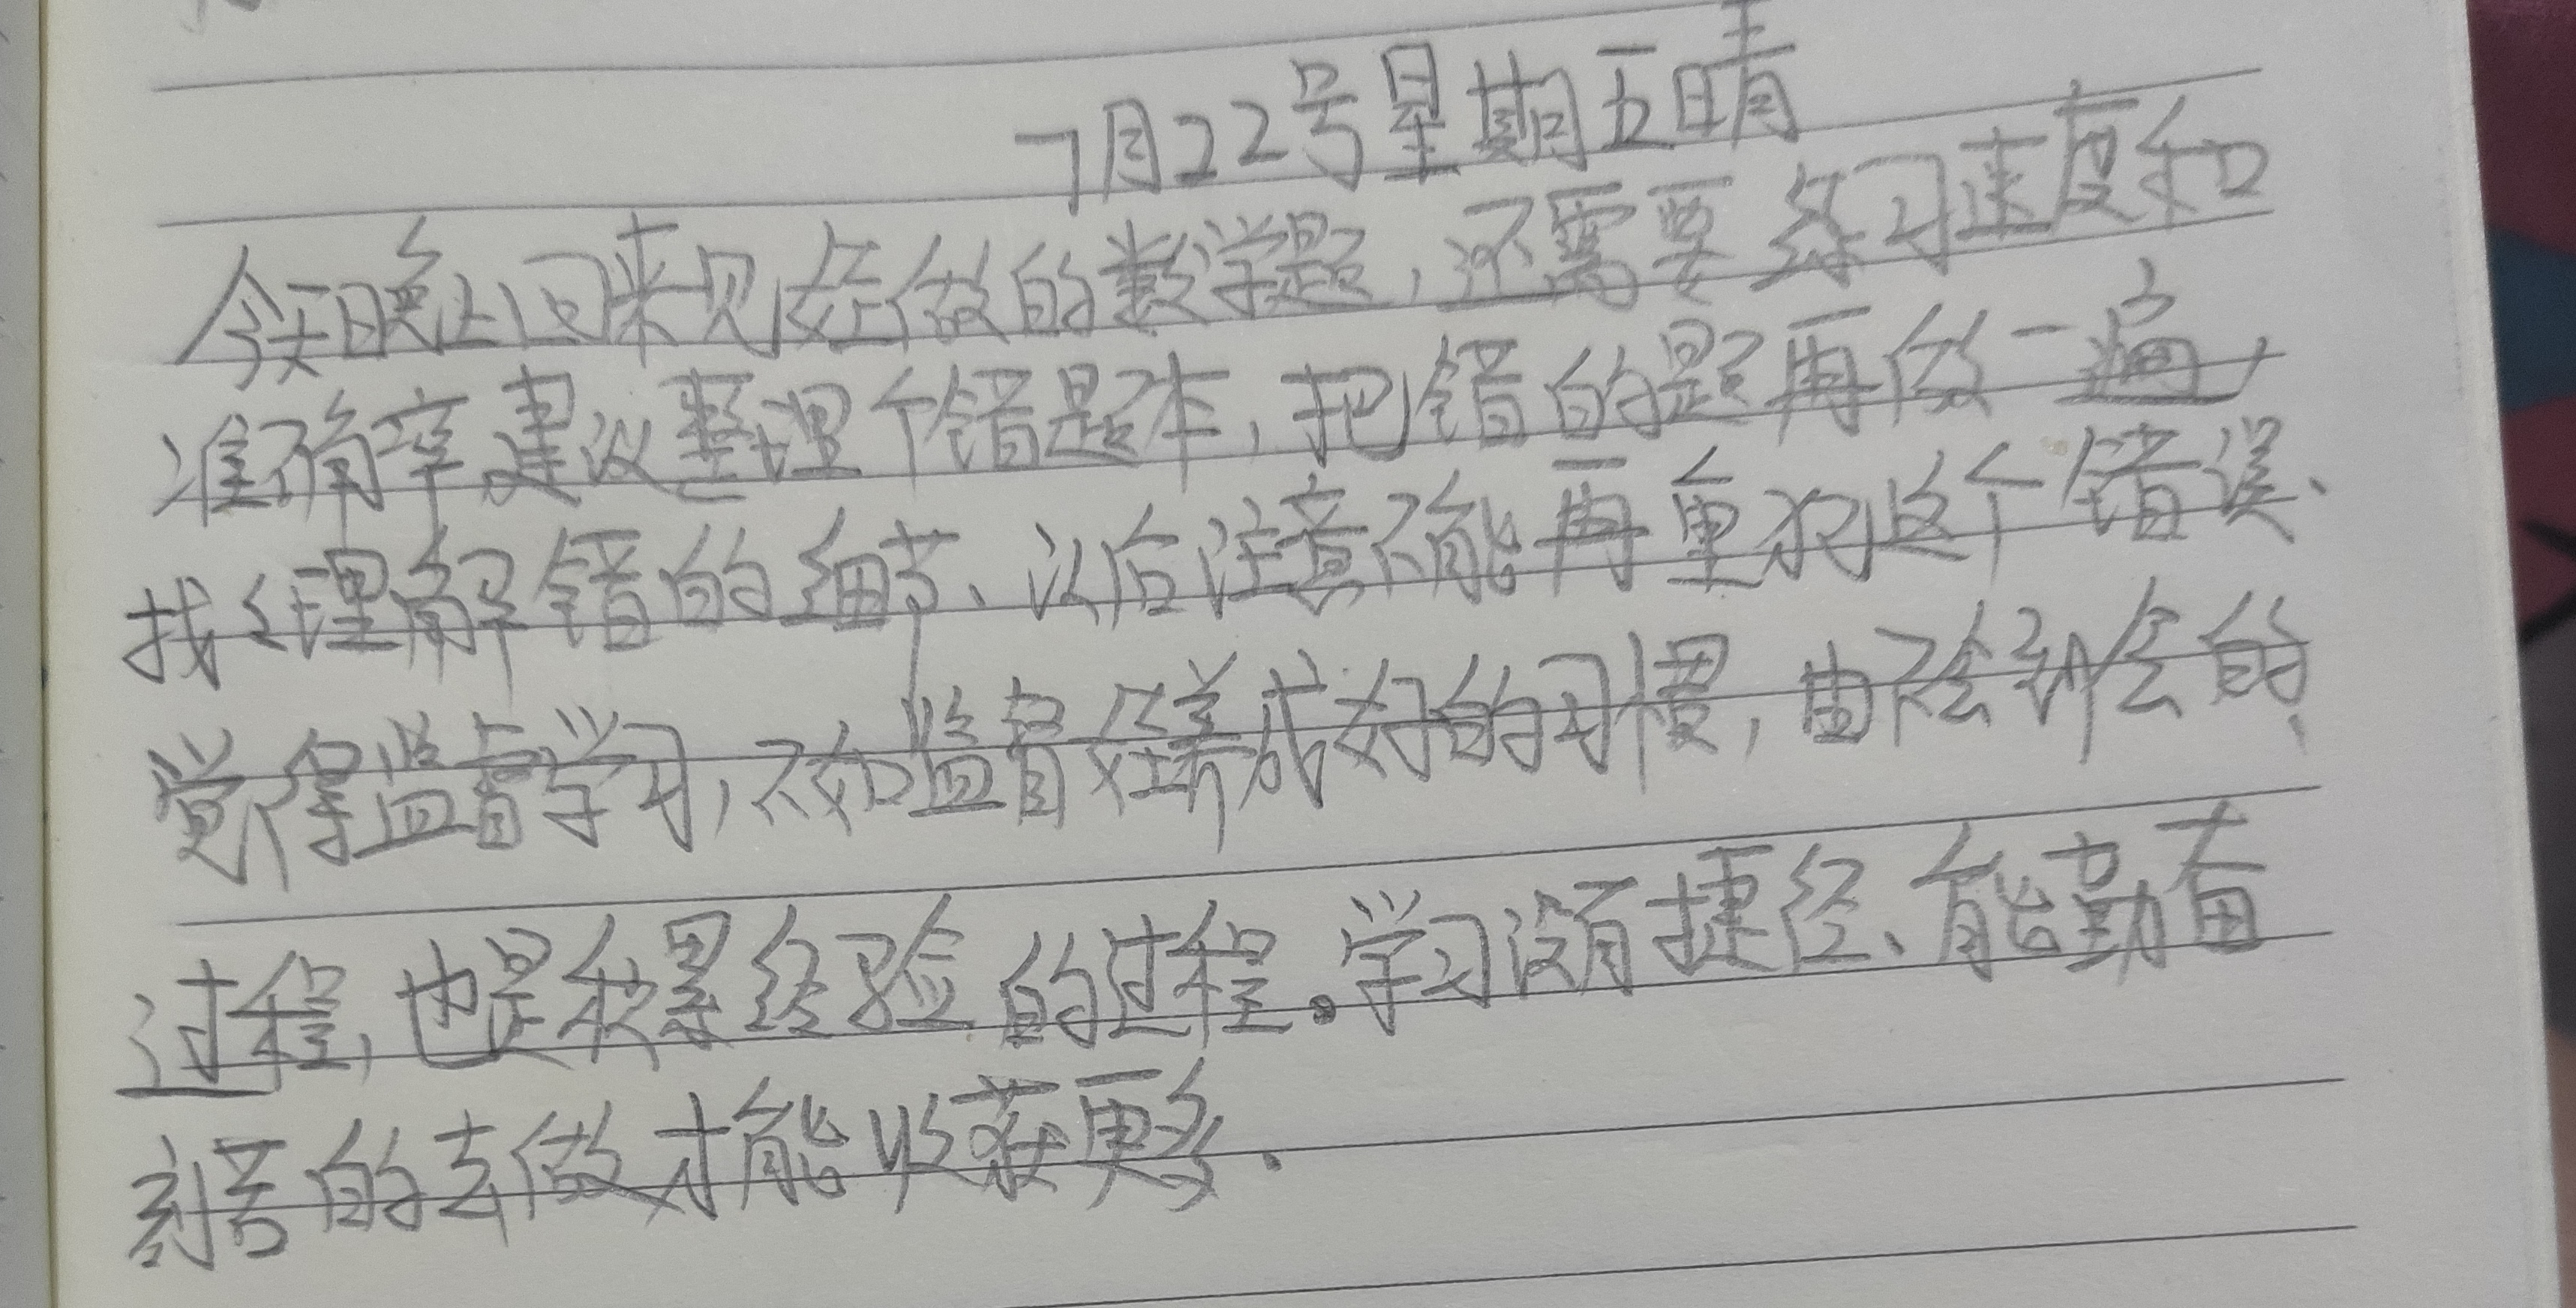 7月22号星期五晴
今天晚上回来见姪做的数学题，还需要练习速度和
准确率建议整理个错题本，把错的题再做一遍，
找纟理解错的细节、以后注意不能再重犯这个错误、
觉得监督学习，不如监督姪养成好的习惯，由不会到会的
过程，也是积累经验的过程。学习没有捷径、能勤奋
刻苦的去做才能收获更多、